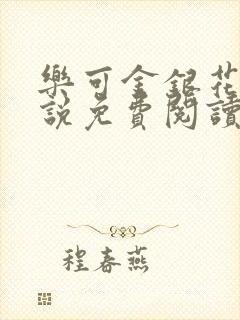 樂可金銀花
說免費閱讀
程春燕